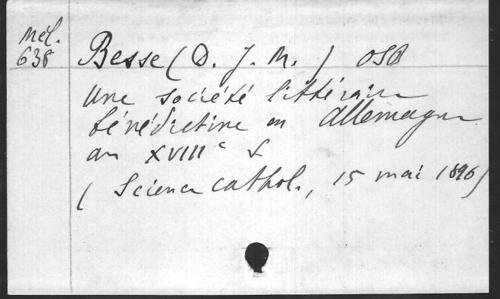 Mél.
638
Besse (D. J. M.) OSB
Une société littéraire
bénédictine en Allemagne
au XVIIIe s.
(Science cathol., 15 mai 1896)